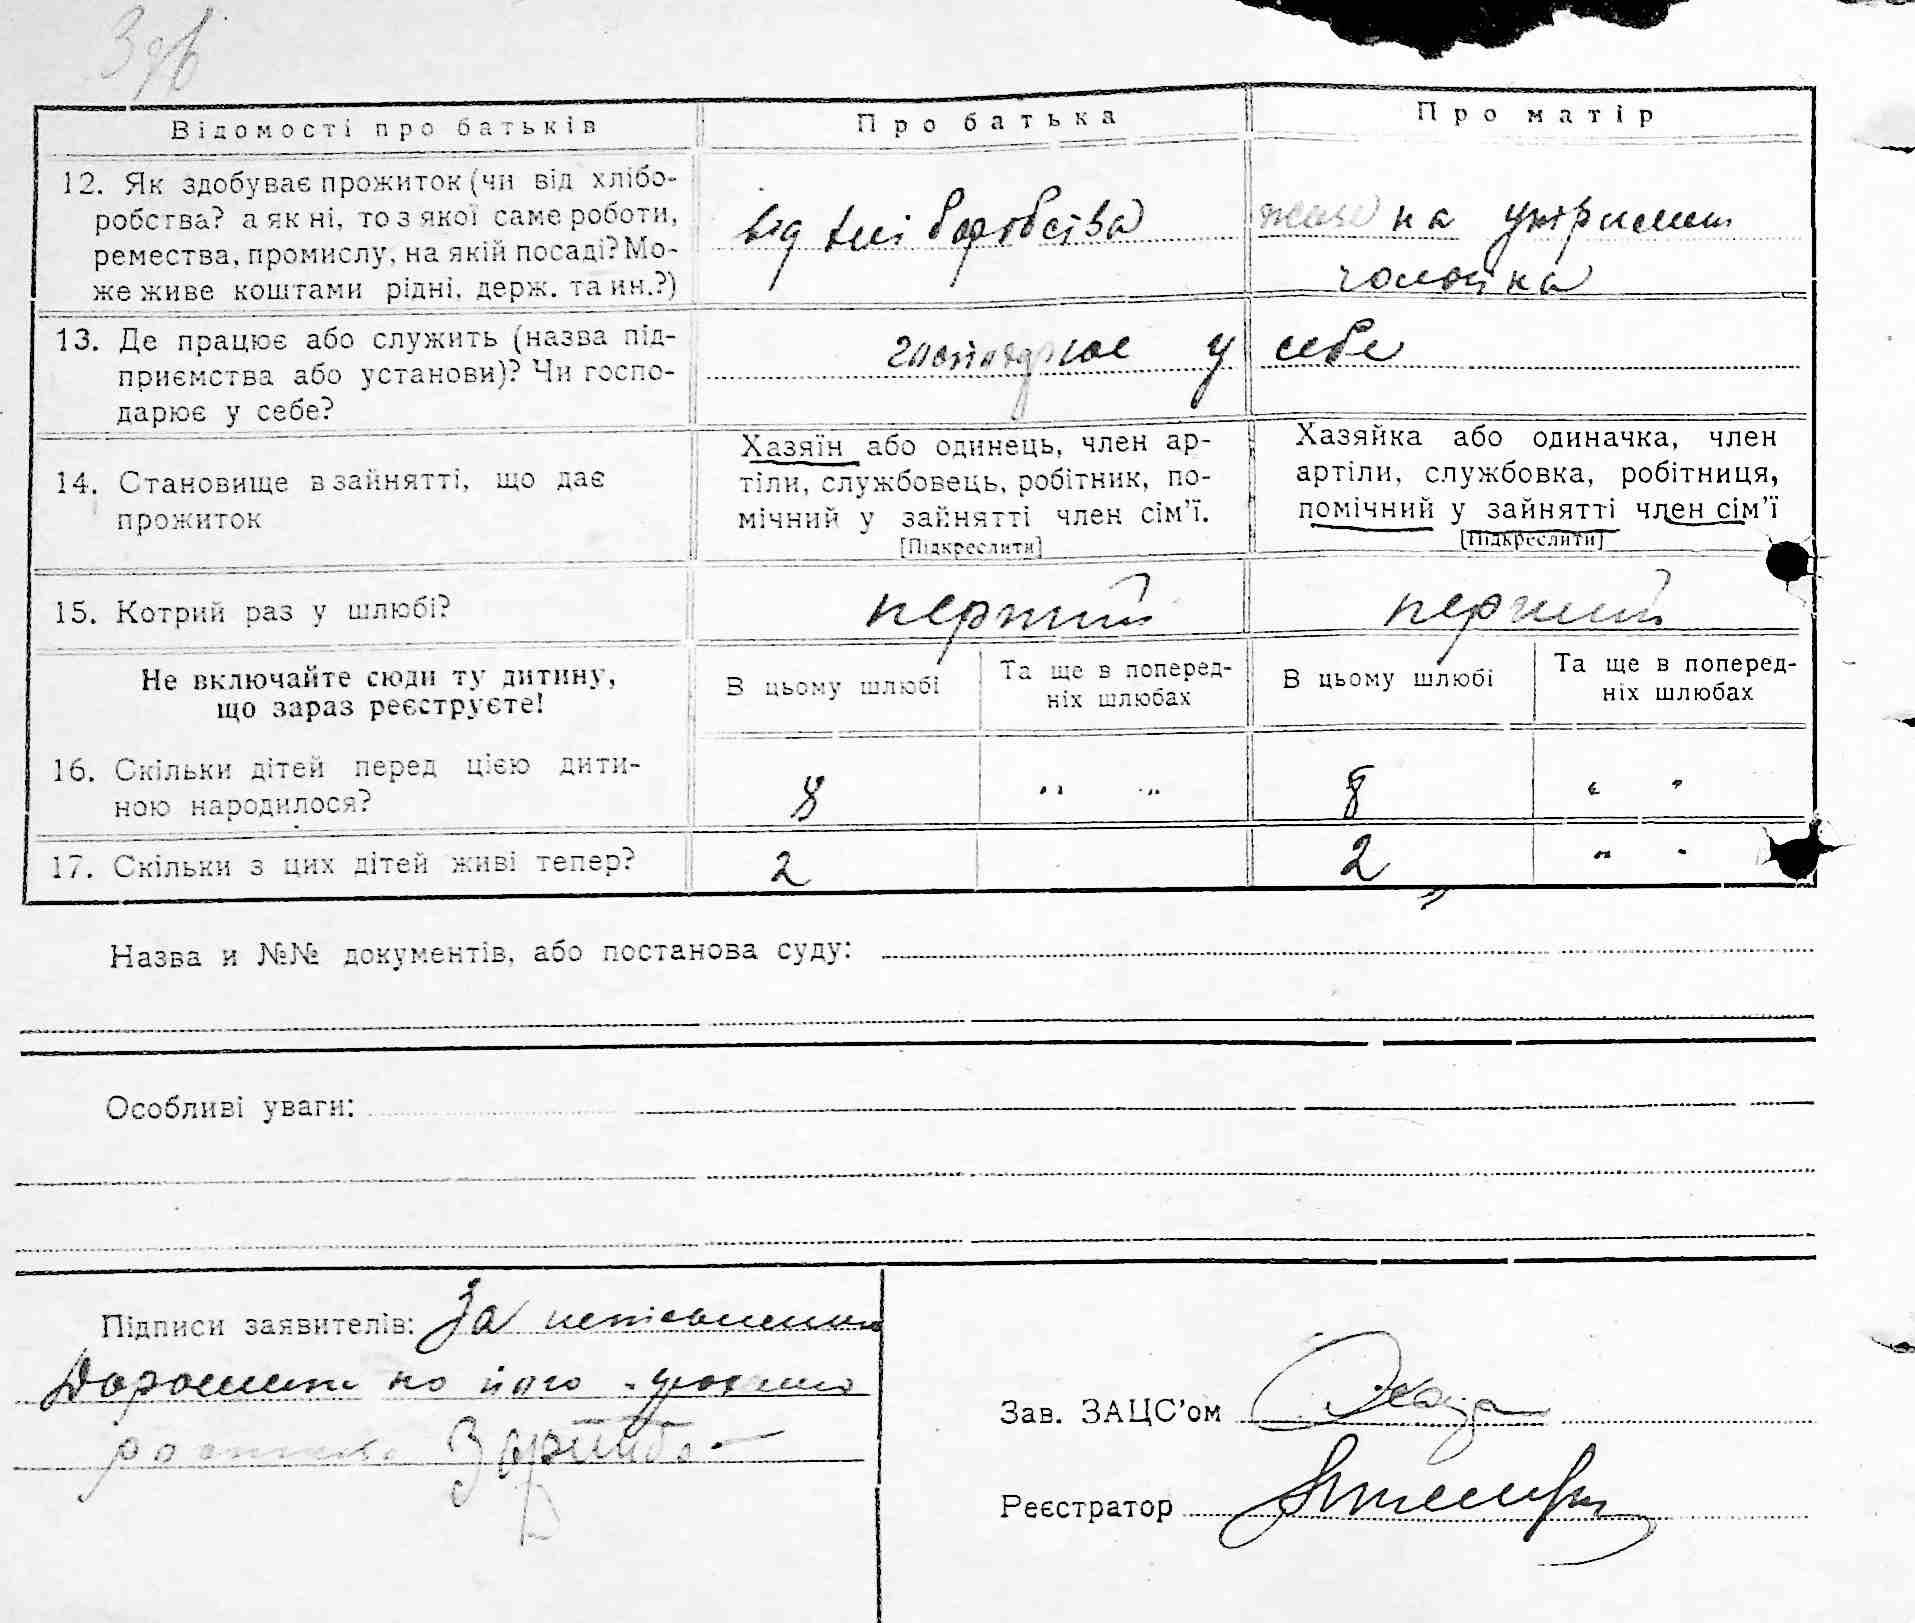 Відомості про батьків
Про батька
Про матір
12. Як здобуває прожиток (чи від хлібо-
робства? а як ні, то з якої саме роботи,
ремества, промислу, на якій посаді? Мо-
же живе коштами рідні, держ. та ин.?)
від хліборобства
живе на утриманні
чоловіка
13. Де працює або служить (назва під-
приємства або установи)? Чи госпо-
дарює у себе?
господарює у себе
14. Становище в зайнятті, що дає
прожиток
Хазяїн або одинець, член ар-
тіли, службовець, робітник, по-
мічний у зайнятті член сім'ї.
[Підкреслити]
Хазяйка або одиначка, член
артіли, службовка, робітниця,
помічний у зайнятті член сім'ї
[Підкреслити]
15. Котрий раз у шлюбі?
перший
перший
Не включайте сюди ту дитину,
що зараз реєструєте!
В цьому шлюбі
Та ще в поперед-
ніх шлюбах
В цьому шлюбі
Та ще в поперед-
ніх шлюбах
16. Скільки дітей перед цією дити-
ною народилося?
8
" "
8
" "
17. Скільки з цих дітей живі тепер?
2
2
" "
Назва и №№ документів, або постанова суду:
Особливі уваги:
Підписи заявителів: За
по його
Зав. ЗАЦС'ом
Реєстратор